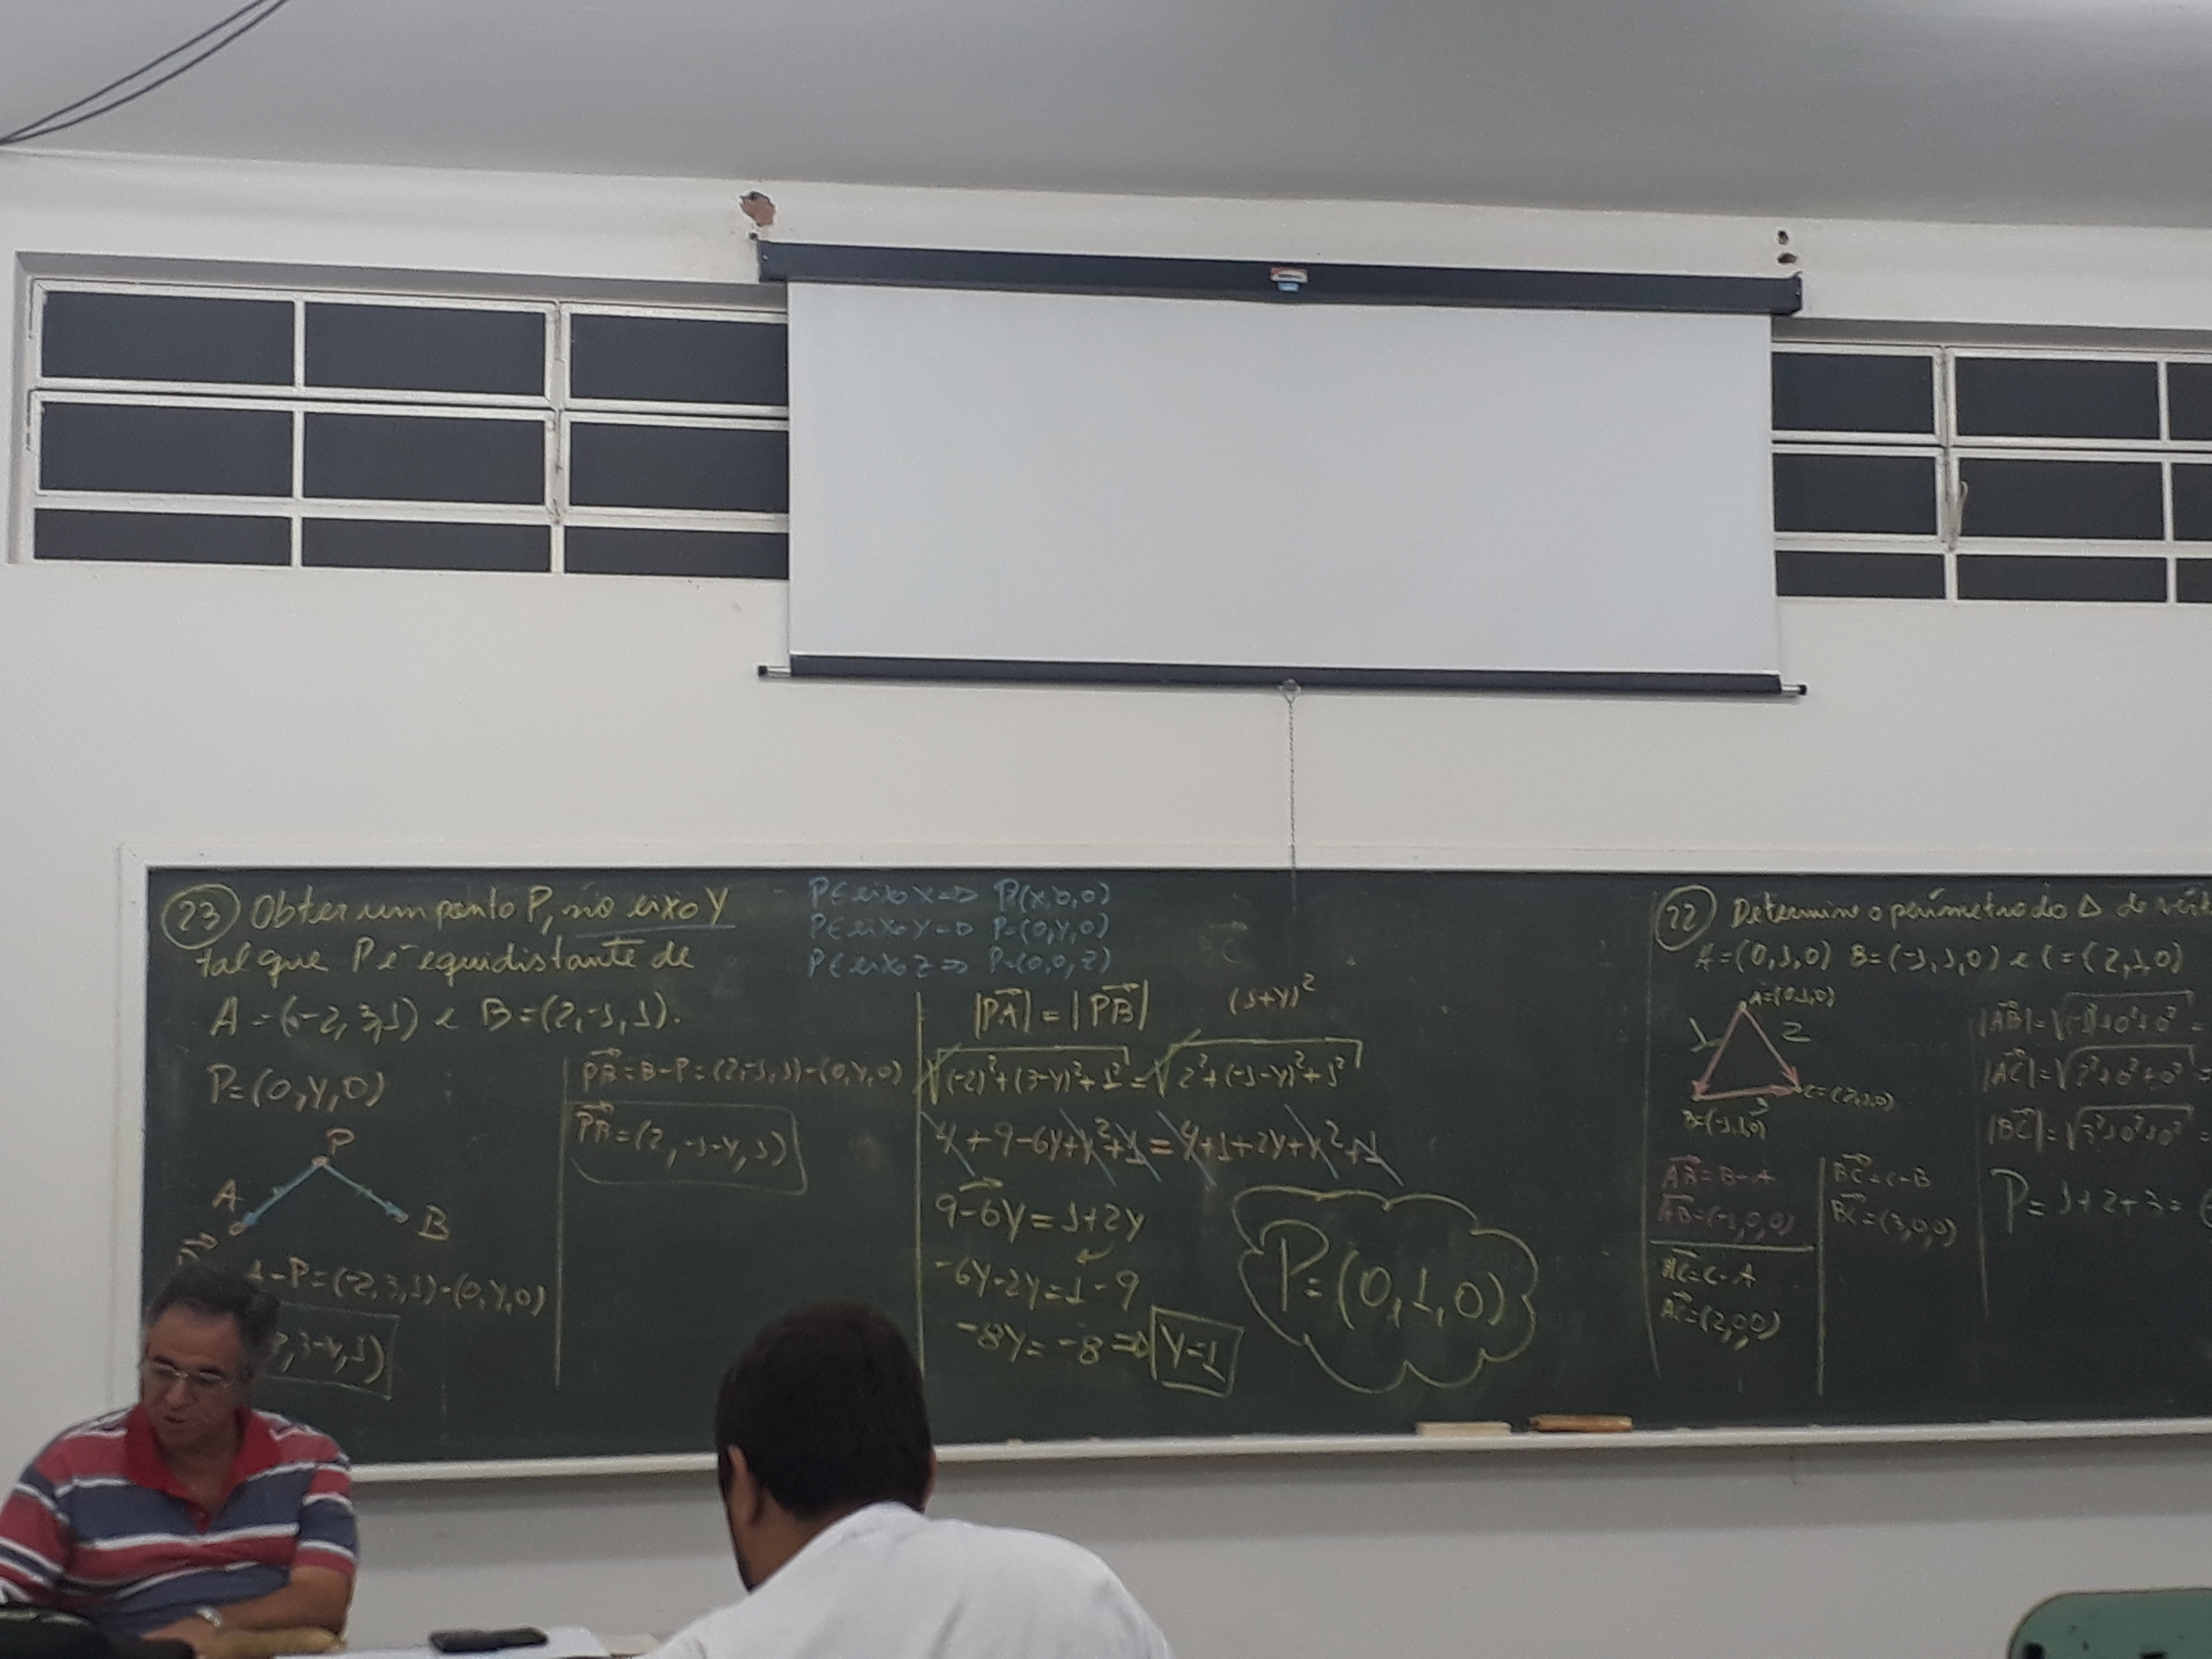 23 Obter um ponto P, no eixo Y
tal que P é equidistante de
A = (-2, 3, 1) e B = (2, -1, 1).
P = (0, Y, 0)
P
A
B
A - P = (-2, 3, 1) - (0, Y, 0)
, 3-Y, 1)
PB = B - P = (2, -1, 1) - (0, Y, 0)
PB = (2, -1-Y, 1)
P ∈ eixo X ⇒ P(x, 0, 0)
P ∈ eixo Y ⇒ P = (0, Y, 0)
P ∈ eixo Z ⇒ P = (0, 0, Z)
|PA| = |PB| (1+Y)²
√(-2)² + (3-Y)² + 1² = √2² + (-1-Y)² + 1²
4 + 9 - 6Y + Y² + 1 = 4 + 1 + 2Y + Y² + 1
9 - 6Y = 1 + 2Y
-6Y - 2Y = 1 - 9
-8Y = -8 ⇒ Y = 1
P = (0, 1, 0)
22 Determine o perímetro do Δ de
A = (0, 1, 0) B = (-1, 1, 0) e C = (2, 1, 0)
A = (0, 1, 0)
1 2
C = (2, 1, 0)
3
B = (-1, 1, 0)
AB = B - A
AB = (-1, 0, 0)
AC = C - A
AC = (2, 0, 0)
BC = C - B
BC = (3, 0, 0)
|AB| = √(-1)² + 0² + 0² =
|AC| = √2² + 0² + 0² =
|BC| = √3² + 0² + 0² =
P = 1 + 2 + 3 =